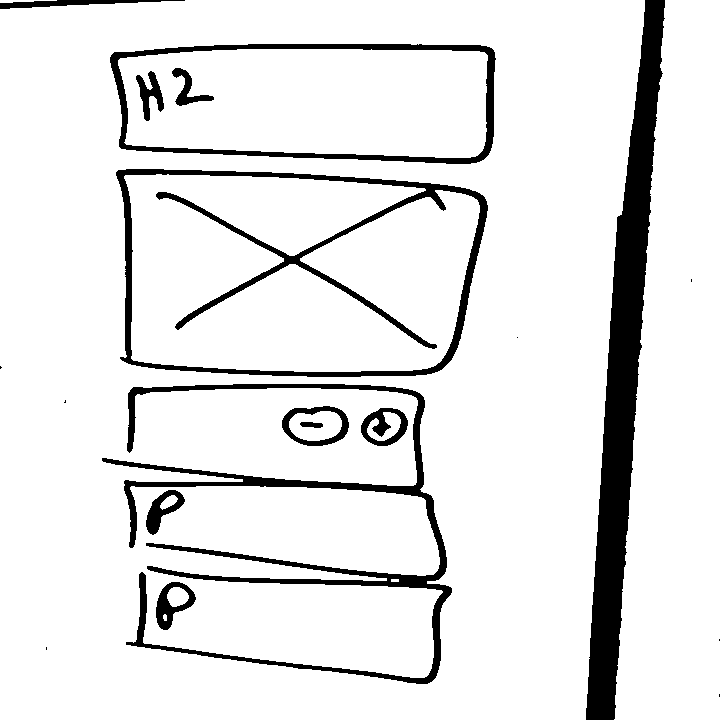 H2
- +
P
P